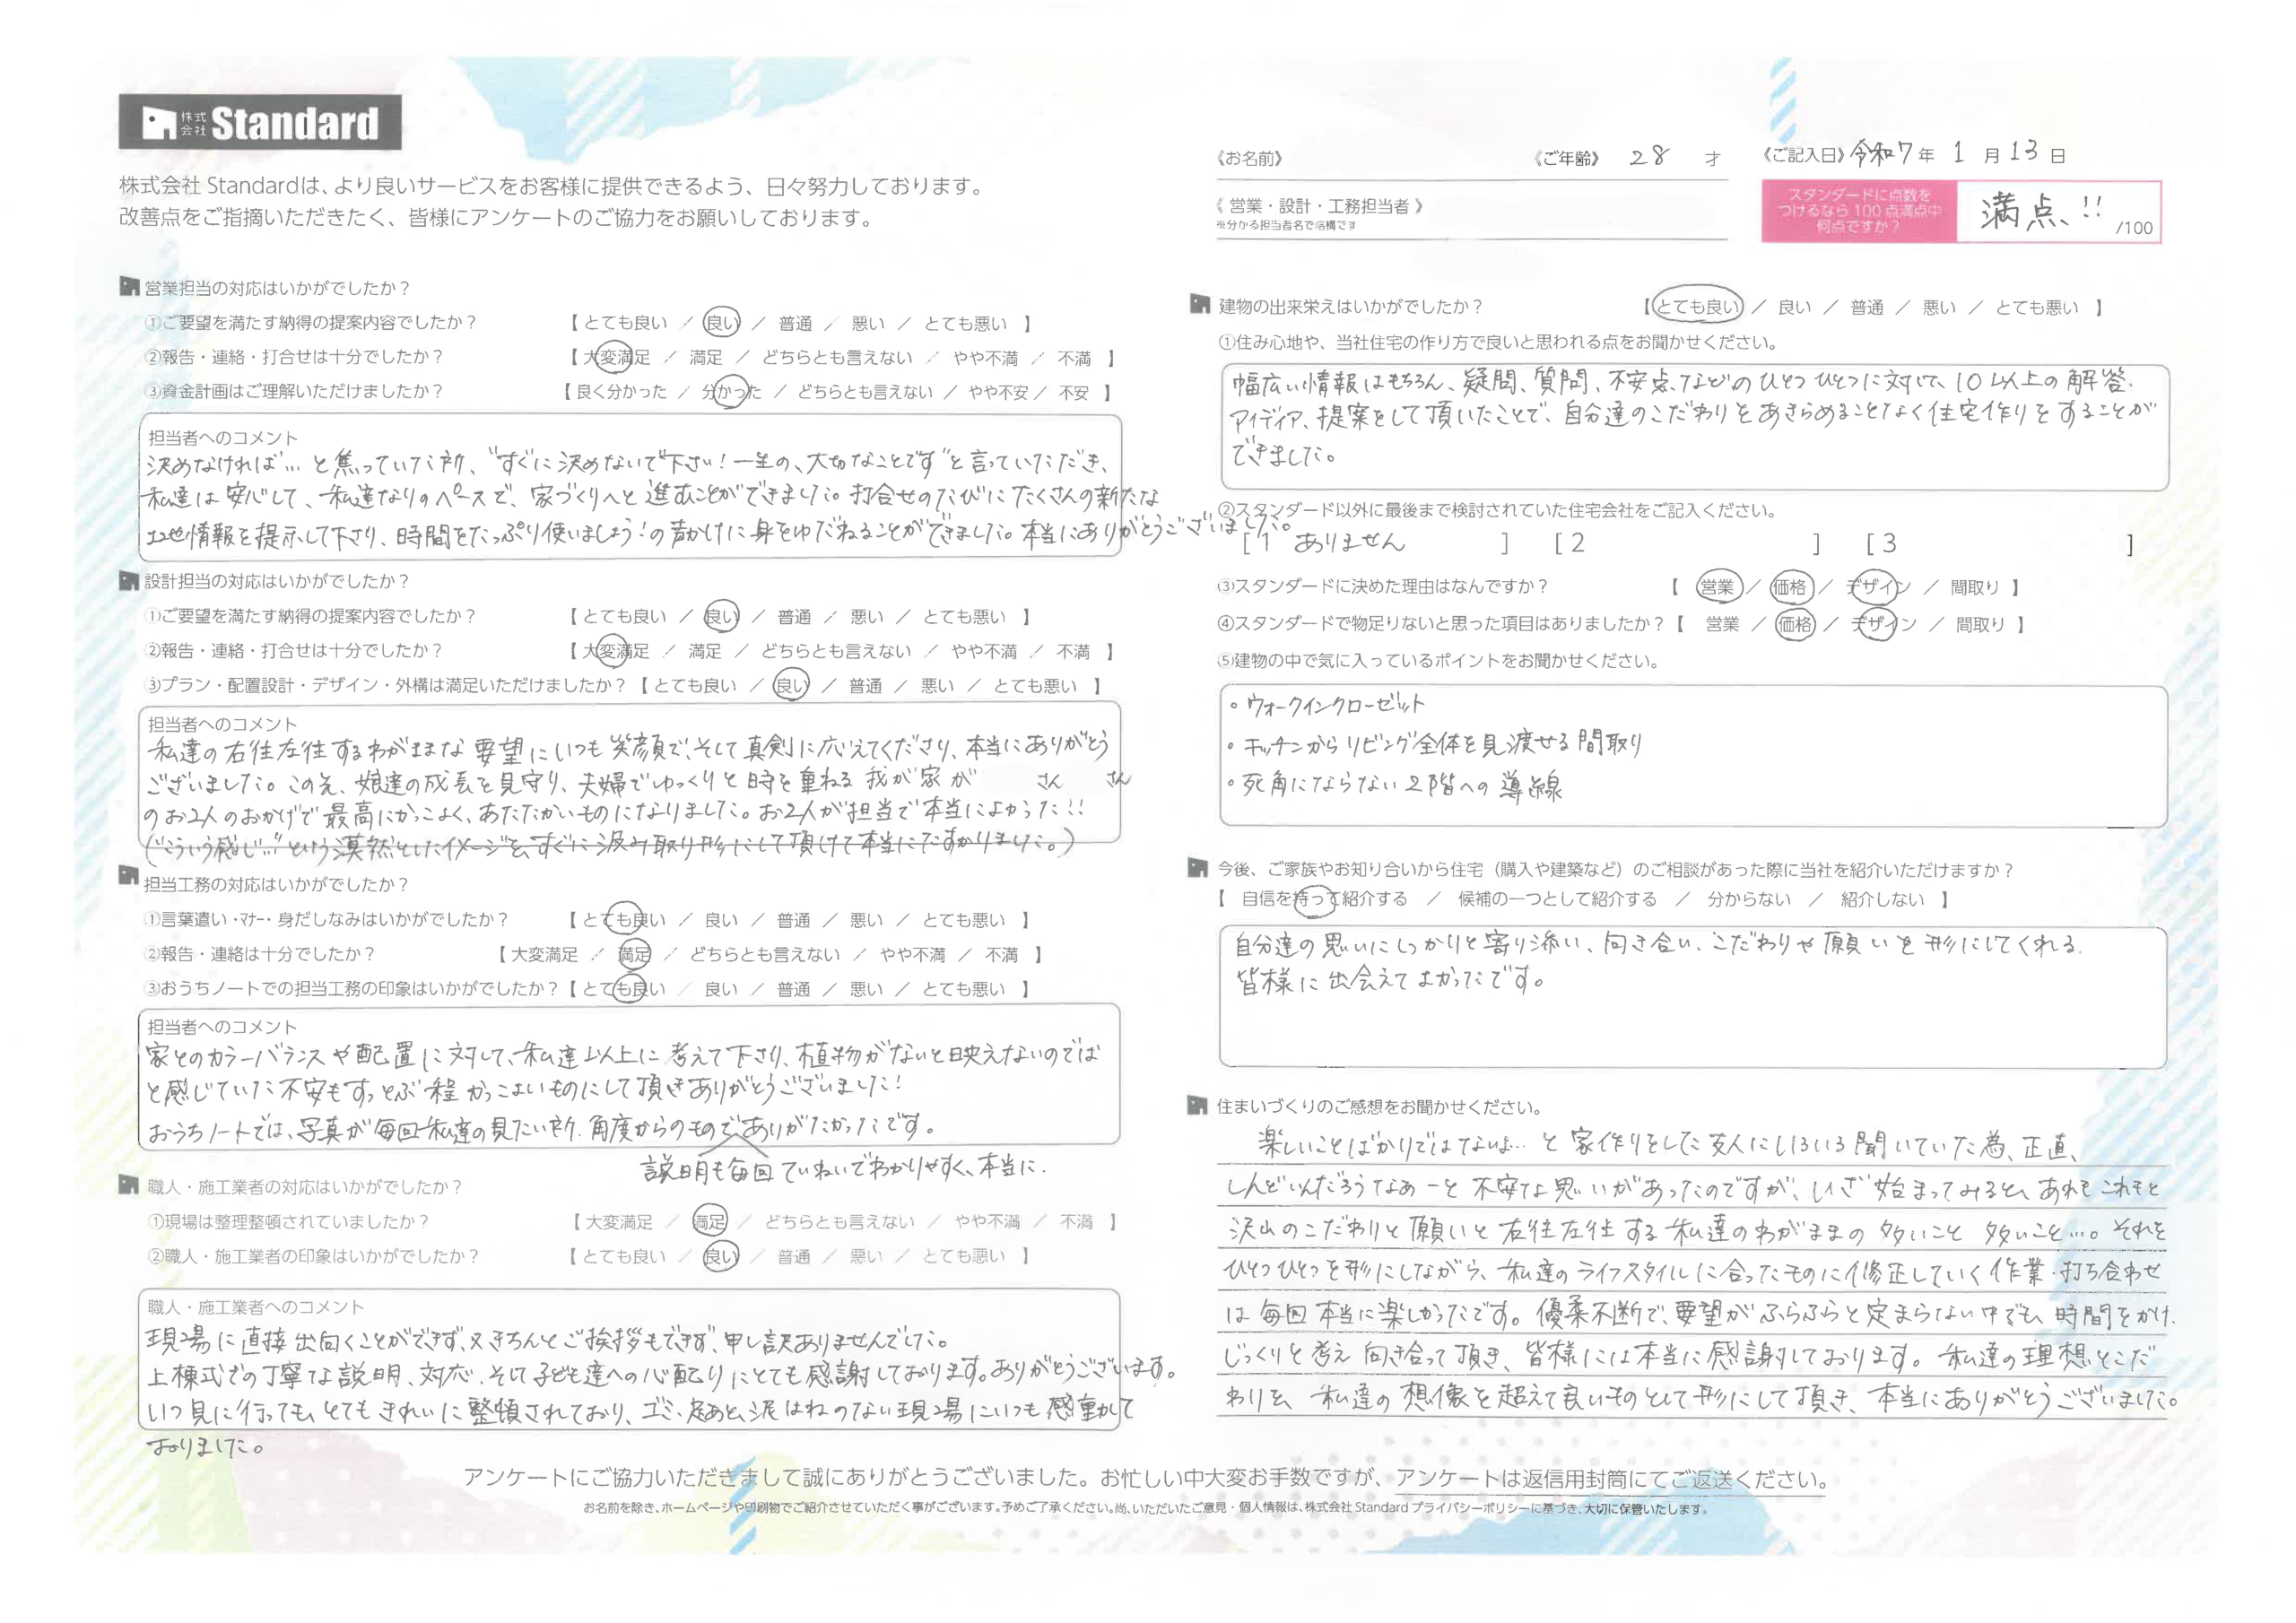 株式会社 Standard
株式会社 Standardは、より良いサービスをお客様に提供できるよう、日々努力しております。
改善点をご指摘いただきたく、皆様にアンケートのご協力をお願いしております。
《お名前》 《ご年齢》 28 才 《ご記入日》令和7年 1月13日
《 営業・設計・工務担当者 》
※分かる担当者名で結構です
スタンダードに点数を
つけるなら 100 点満点中
何点ですか?
満点、!! /100
営業担当の対応はいかがでしたか?
①ご要望を満たす納得の提案内容でしたか? 【 とても良い / 良い / 普通 / 悪い / とても悪い 】
②報告・連絡・打合せは十分でしたか? 【 大変満足 / 満足 / どちらとも言えない / やや不満 / 不満 】
③資金計画はご理解いただけましたか? 【 良く分かった / 分かった / どちらとも言えない / やや不安 / 不安 】
担当者へのコメント
決めなければ…と焦っていた所、"すぐに決めないで下さい!一生の、大切なことです"と言っていただき、
私達は安心して、私達なりのペースで、家づくりへと進むことができました。打合せのたびにたくさんの新たな
土地情報を提示して下さり、時間をたっぷり使いましょう!の声かけに身をゆだねることができました。本当にありがとうございました。
設計担当の対応はいかがでしたか?
①ご要望を満たす納得の提案内容でしたか? 【 とても良い / 良い / 普通 / 悪い / とても悪い 】
②報告・連絡・打合せは十分でしたか? 【 大変満足 / 満足 / どちらとも言えない / やや不満 / 不満 】
③プラン・配置設計・デザイン・外構は満足いただけましたか? 【 とても良い / 良い / 普通 / 悪い / とても悪い 】
担当者へのコメント
私達の右往左往するわがままな要望にいつも笑顔で、そして真剣に応えてくださり、本当にありがとう
ございました。この先、娘達の成長を見守り、夫婦でゆっくりと時を重ねる我が家が さん さん
のお2人のおかげで最高にかっこよく、あたたかいものになりました。お2人が担当で本当によかった!!
("こういう感じ…"という漠然としたイメージを、すぐに汲み取り形にして頂けて本当にたすかりました。)
担当工務の対応はいかがでしたか?
①言葉遣い・マナー・身だしなみはいかがでしたか? 【 とても良い / 良い / 普通 / 悪い / とても悪い 】
②報告・連絡は十分でしたか? 【 大変満足 / 満足 / どちらとも言えない / やや不満 / 不満 】
③おうちノートでの担当工務の印象はいかがでしたか? 【 とても良い / 良い / 普通 / 悪い / とても悪い 】
担当者へのコメント
家とのカラーバランスや配置に対して、私達以上に考えて下さり、植物がないと映えないのでは
と感じていた不安もすっとぶ程かっこよいものにして頂きありがとうございました!
おうちノートでは、写真が毎回私達の見たい所、角度からのものでありがたかったです。
説明も毎回ていねいでわかりやすく、本当に.
職人・施工業者の対応はいかがでしたか?
①現場は整理整頓されていましたか? 【 大変満足 / 満足 / どちらとも言えない / やや不満 / 不満 】
②職人・施工業者の印象はいかがでしたか? 【 とても良い / 良い / 普通 / 悪い / とても悪い 】
職人・施工業者へのコメント
現場に直接出向くことができず、又きちんとご挨拶もできず、申し訳ありませんでした。
上棟式での丁寧な説明、対応、そして子ども達への心配りにとても感謝しております。ありがとうございます。
いつ見に行っても、とてもきれいに整頓されており、ゴミ、足あと、泥はねのない現場にいつも感動して
おりました。
建物の出来栄えはいかがでしたか? 【 とても良い / 良い / 普通 / 悪い / とても悪い 】
①住み心地や、当社住宅の作り方で良いと思われる点をお聞かせください。
幅広い情報はもちろん、疑問、質問、不安点などのひとつひとつに対して、10以上の解答、
アイディア、提案をして頂いたことで、自分達のこだわりをあきらめることなく住宅作りをすることが
できました。
②スタンダード以外に最後まで検討されていた住宅会社をご記入ください。
[ 1 ありません ] [ 2 ] [ 3 ]
③スタンダードに決めた理由はなんですか? 【 営業 / 価格 / デザイン / 間取り 】
④スタンダードで物足りないと思った項目はありましたか? 【 営業 / 価格 / デザイン / 間取り 】
⑤建物の中で気に入っているポイントをお聞かせください。
・ウォークインクローゼット
・キッチンからリビング全体を見渡せる間取り
・死角にならない2階への導線
今後、ご家族やお知り合いから住宅(購入や建築など)のご相談があった際に当社を紹介いただけますか?
【 自信を持って紹介する / 候補の一つとして紹介する / 分からない / 紹介しない 】
自分達の思いにしっかりと寄り添い、向き合い、こだわりや願いを形にしてくれる、
皆様に出会えてよかったです。
住まいづくりのご感想をお聞かせください。
楽しいことばかりではないよ…と家作りをした友人にいろいろ聞いていた為、正直、
しんどいんだろうなぁーと不安な思いがあったのですが、いざ始まってみると、あれもこれもと
沢山のこだわりと願いと右往左往する私達のわがままの多いこと多いこと…。それを
ひとつひとつを形にしながら、私達のライフスタイルに合ったものに修正していく作業・打ち合わせ
は毎回本当に楽しかったです。優柔不断で、要望がふらふらと定まらない中でも、時間をかけ、
じっくりと考え向き合って頂き、皆様には本当に感謝しております。私達の理想とこだ
わりを、私達の想像を超えて良いものとして形にして頂き、本当にありがとうございました。
アンケートにご協力いただきまして誠にありがとうございました。お忙しい中大変お手数ですが、アンケートは返信用封筒にてご返送ください。
お名前を除き、ホームページや印刷物でご紹介させていただく事がございます。予めご了承ください。尚、いただいたご意見・個人情報は、株式会社 Standard プライバシーポリシーに基づき、大切に保管いたします。